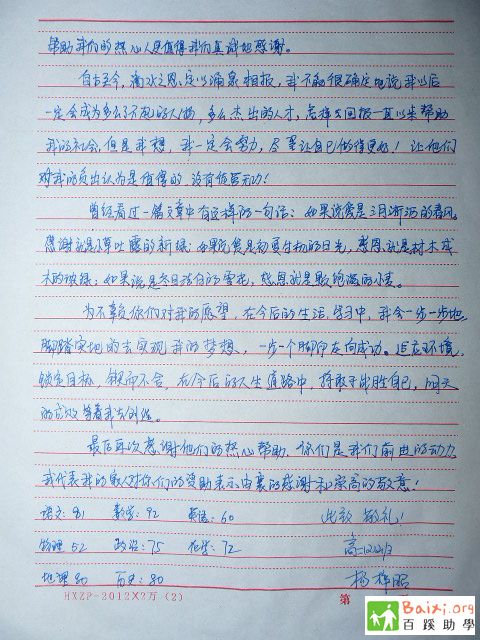 帮助我们的热心人是值得我们真诚地感谢。
自古至今，滴水之恩，定以涌泉相报，我不能很确定地说我以后
一定会成为多么了不起的人物，多么杰出的人才，怎样去回报一直以来帮助
我的社会，但是我想，我一定会努力，尽量让自己做得更好！让他们
对我的付出认为是值得的，没有徒劳无功！
曾经看过一篇文章中有这样的一句话：如果说爱是三月浙沥的春风，
感谢就是小草吐露的新绿；如果说爱是初夏的日光，感恩就是树木成
木的玻璃；如果说是冬日洁白的雪花，感恩就是
为不辜负你们对我的愿望，在今后的生活、学习中，我会一步一步地
脚踏实地的去实现我的梦想，一步一个脚印走向成功。适应环境，
锁定目标，锲而不舍，在今后的人生道路中，将敢于战胜自己，明天
的成败等着我去创造。
最后再次感谢他们的热心帮助，你们是我们前进的动力
我代表我的家人对你们的资助表示由衷的感谢和崇高的敬意！
语文：81 数学：92 英语：60 此致 敬礼！
物理 52 政治：75 化学：72
地理 80 历史：80 杨
HXZP-2012X2万 (2) 第
Baixi.org
百蹊助學